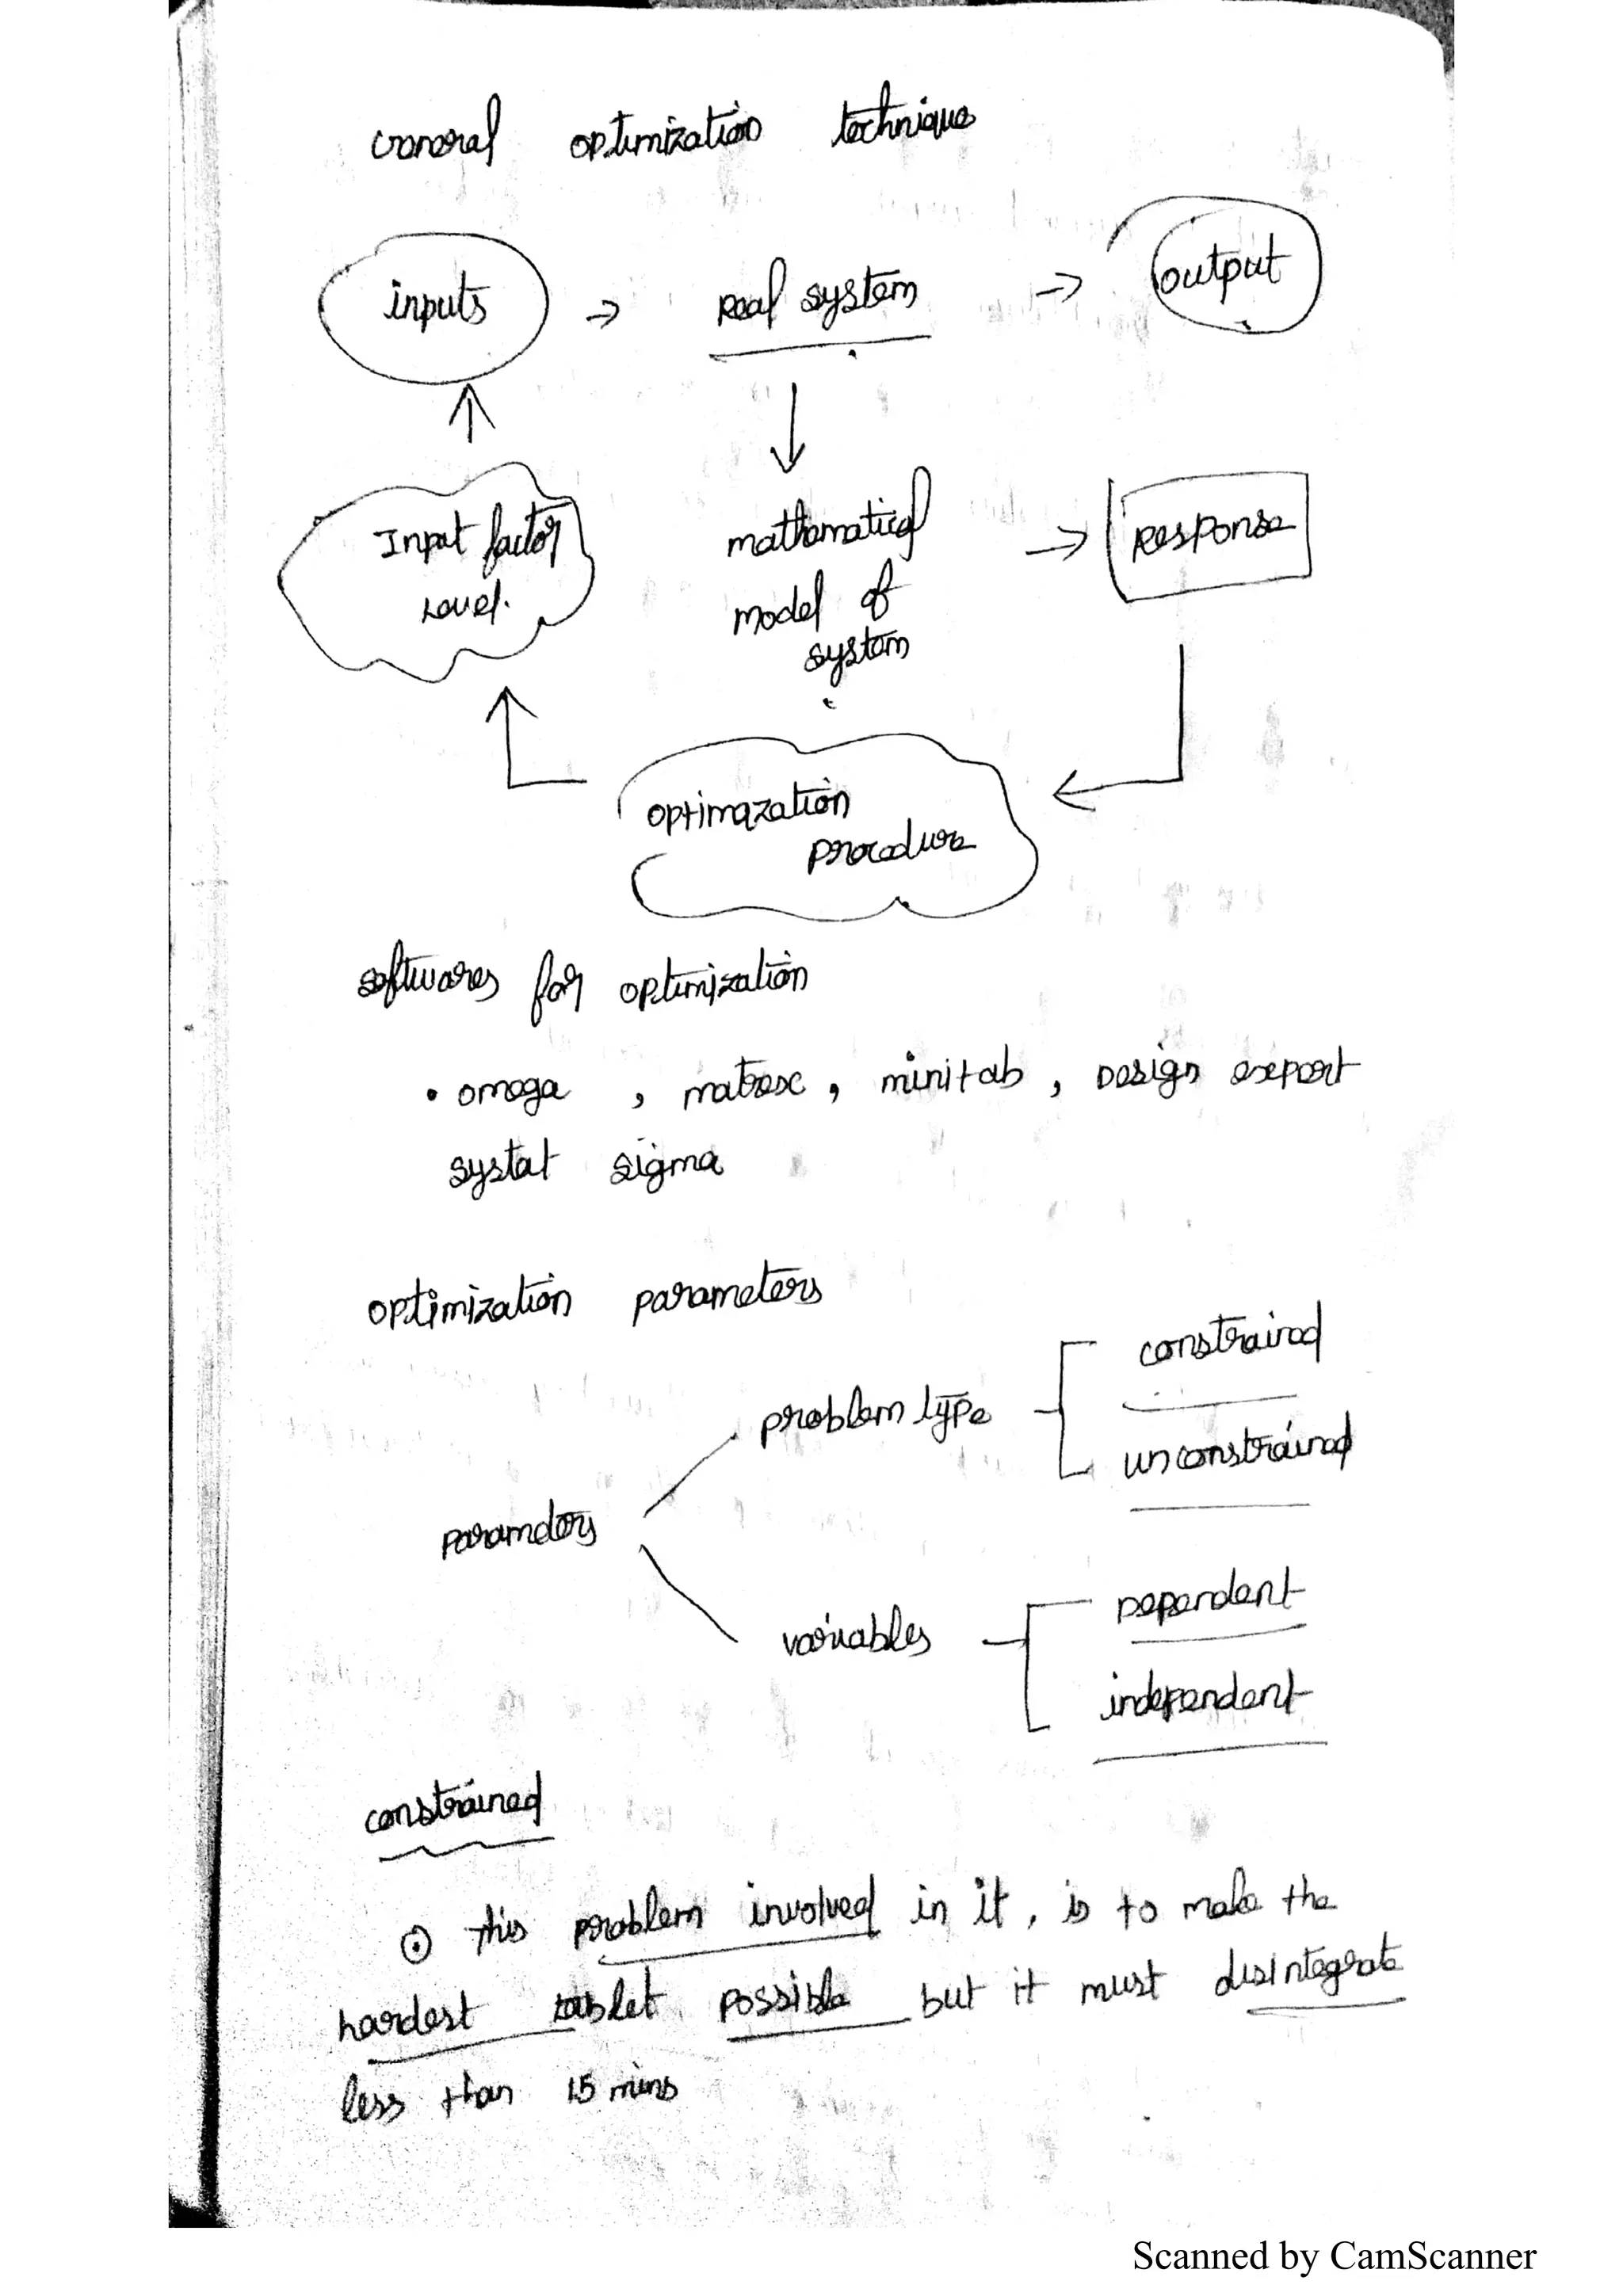 General optimization technique
inputs → Real system → output
Input factor
Level.
mathematical
model of
system
→ Response
optimazation
procedure
softwares for optimization
• omega , matrex , minitab , Design expert
systat sigma
optimization parameters
constrained
problem type
unconstrained
parameters
Dependent
variables
independent
constrained
⊙ this problem involved in it, is to make the
hardest tablet possible but it must disintegrate
less than 15 mins
Scanned by CamScanner